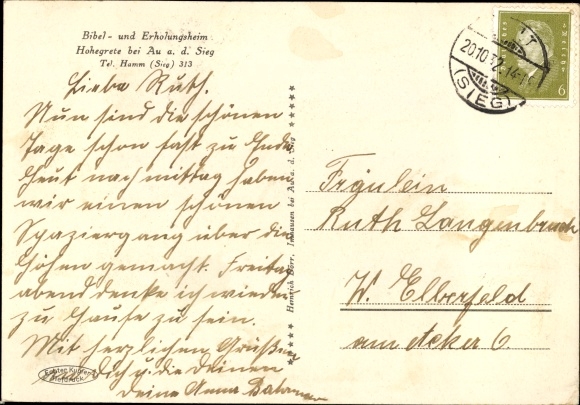 Bibel- und Erholungsheim
Hohegrete bei Au a. d. Sieg
Tel. Hamm (Sieg) 313
Liebe Ruth.
Nun sind die schönen
Tage schon fast zu Ende
Heut nachmittag haben
wir einen schönen
Spaziergang über die
Höhen gemacht. Freitag
abend denke ich wieder
zu Hause zu sein.
Mit herzlichen Grüßen
Dich u. die Deinen
Deine Anna
Echter Kupfer
Tiefdruck
Heinrich Dörr, bei Au a. d. Sieg
20.10.32.14
(SIEG)
6
Fräulein
Ruth Langenbruch
W. Elberfeld
am Acker 6.